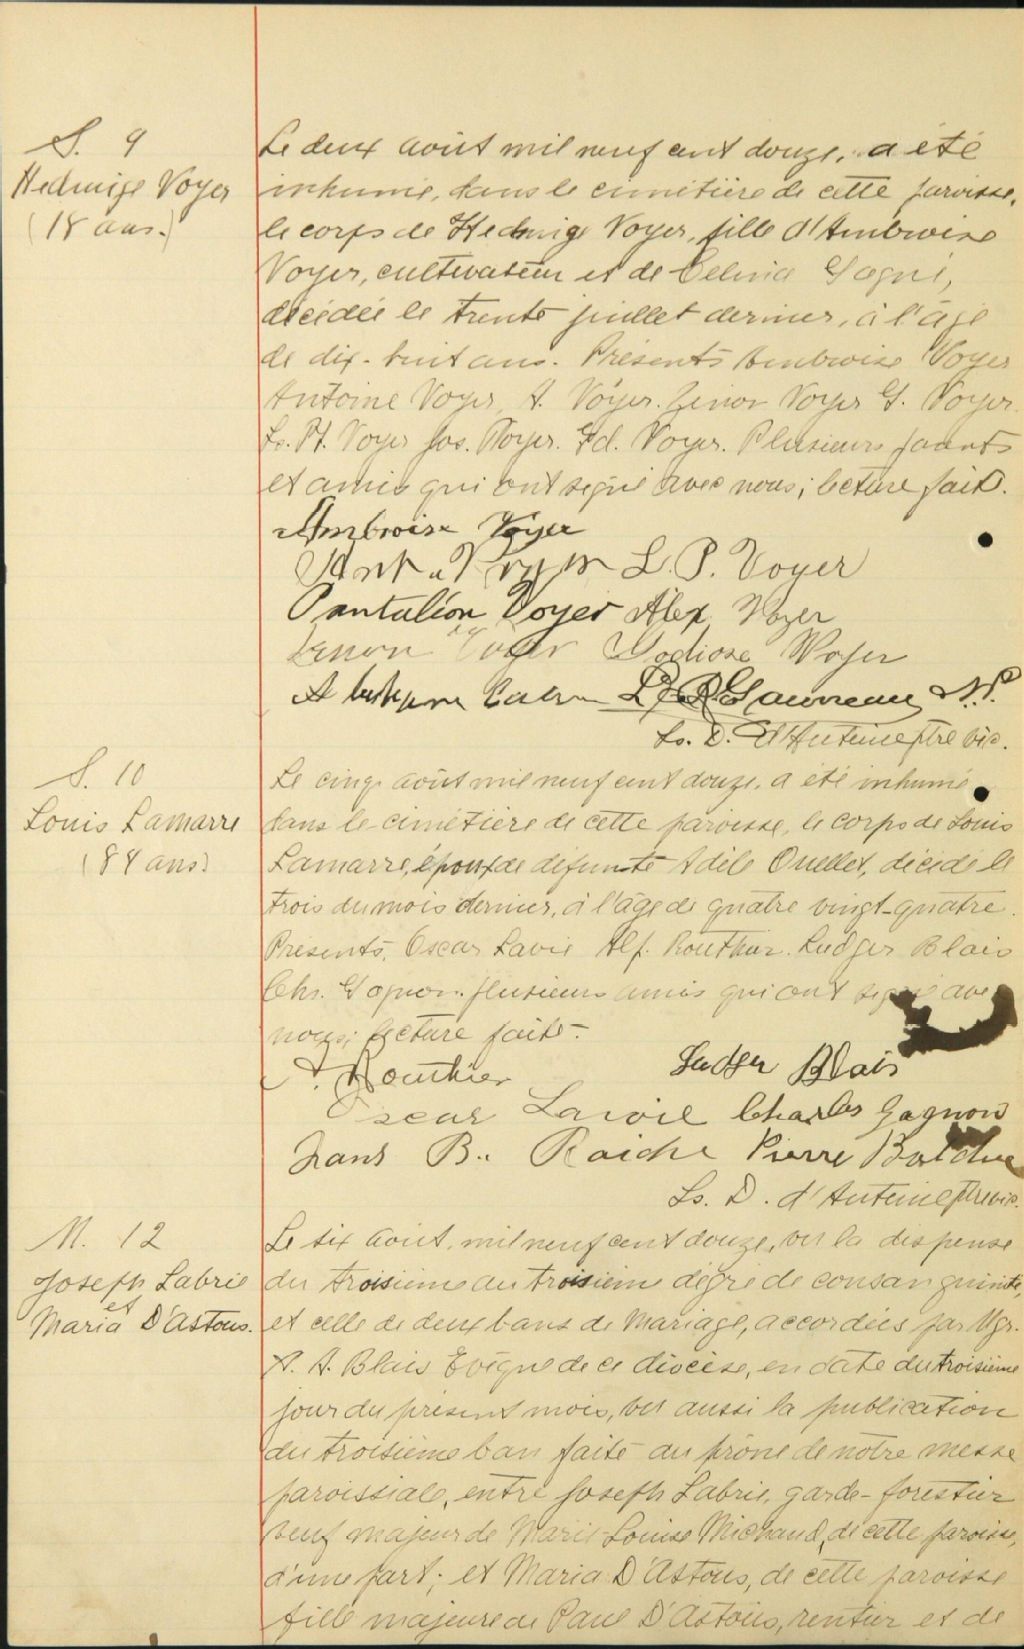 S. 9
Hedwige Voyer
(18 ans.)
Le deux août mil neuf cent douze, a été
inhumé, dans le cimetière de cette paroisse,
le corps de Hedwige Voyer, fille d'Ambroise
Voyer, cultivateur et de Celina Gagné,
décédée le trente juillet dernier, à l'âge
de dix-huit ans. Présents Ambroise Voyer
Antoine Voyer, A. Voyer. Zenon Voyer G. Voyer.
Ls. Pt. Voyer Jos. Voyer. Ed. Voyer. Plusieurs parents
et amis qui ont signé avec nous; lecture faite.
Ambroise Voyer
L. P. Voyer
Pantaléon Voyer Alex Voyer
Zenon Voyer Godiose Voyer
Gauvreau N.P.
Ls. D. d'Anteuil Ptre vic.
S. 10
Louis Lamarre
(84 ans)
Le cinq août mil neuf cent douze, a été inhumé
dans le cimetière de cette paroisse, le corps de Louis
Lamarre, époux de défunte Adèle Ouellet, décédé le
trois du mois dernier, à l'âge de quatre vingt-quatre.
Présents, Oscar Lavoie Alf. Routhier. Ludger Blais
Chs. Gagnon. plusieurs amis qui ont signé avec
nous; lecture faite.
A. Routhier Ludger Blais
Oscar Lavoie Charles Gagnon
Frans B. Raiche Pierre Bolduc
Ls. D. d'Anteuil Ptre vic.
M. 12
Joseph Labrie
et
Maria D'Astous.
Le six août, mil neuf cent douze, vu la dispense
du troisième au troisième degré de consanguinité,
et celle de deux bans de mariage, accordées par Mgr.
A. A. Blais Evêque de ce diocèse, en date du troisième
jour du présent mois, vu aussi la publication
du troisième ban faite au prône de notre messe
paroissiale, entre Joseph Labrie, garde-forestier
veuf majeur de Marie Louise Michaud, de cette paroisse,
d'une part; et Maria D'Astous, de cette paroisse
fille majeure de Paul D'Astous, rentier et de